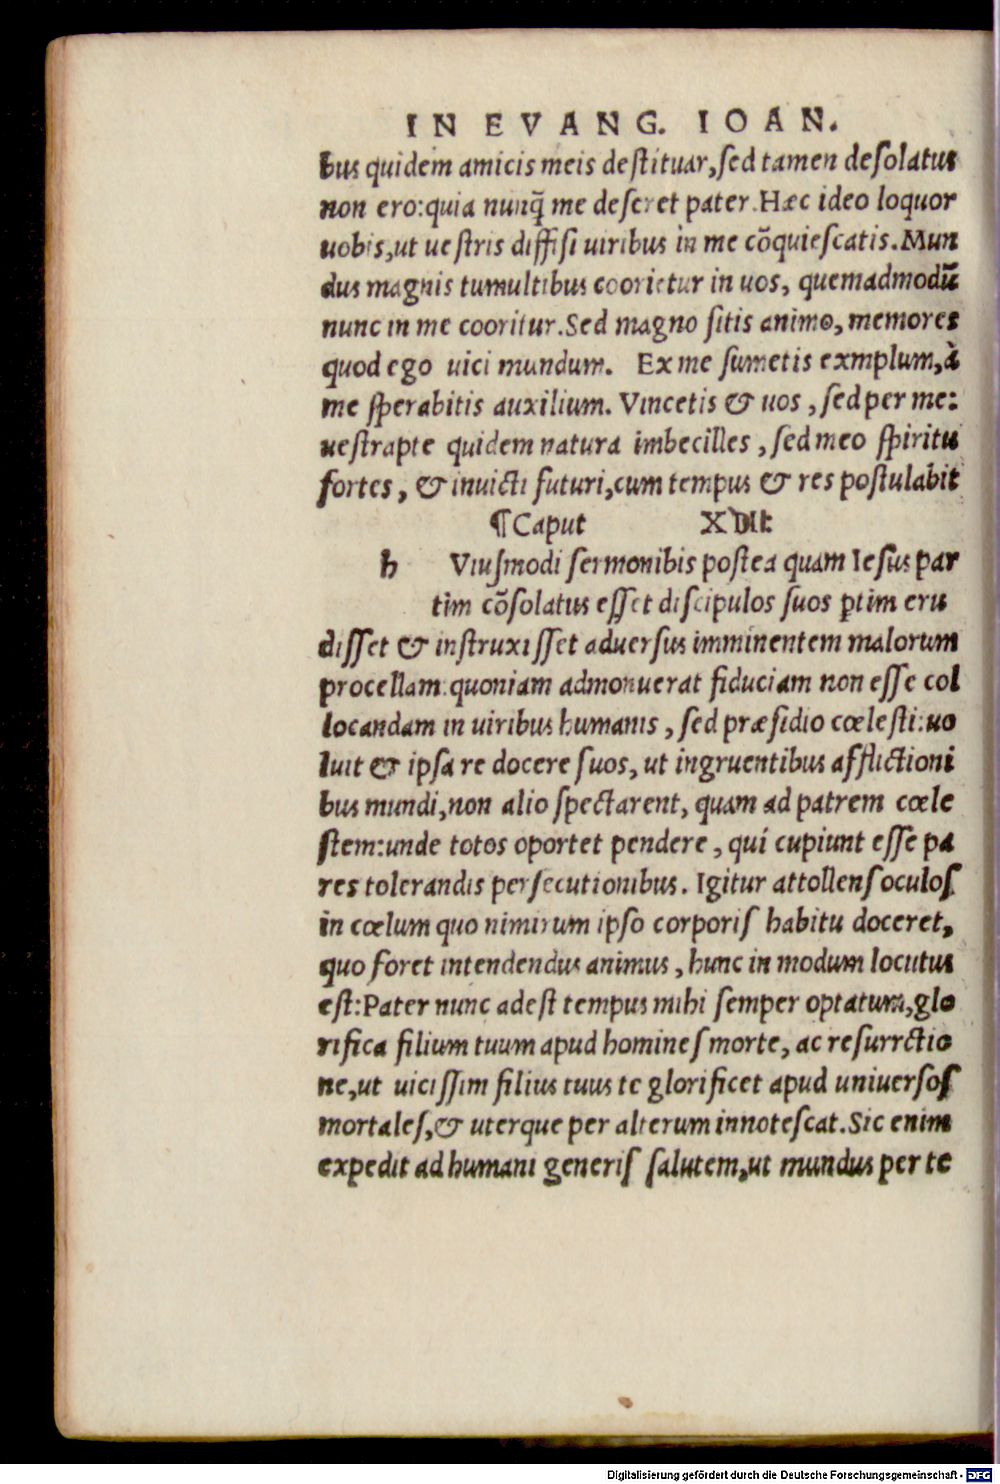 IN EVANG. IOAN.
bus quidem amicis meis deſtituar,ſed tamen deſolatus
non ero:quia nunq̃ me deſeret pater.Hæc ideo loquor
uobis,ut ueſtris diffiſi uiribus in me cõquieſcatis.Mun
dus magnis tumultibus coorietur in uos, quemadmodũ
nunc in me cooritur.Sed magno ſitis animo, memores
quod ego uici mundum. Ex me ſumetis exmplum,à
me ſperabitis auxilium. Vincetis & uos , ſed per me:
ueſtrapte quidem natura imbecilles , ſed meo ſpiritu
fortes , & inuicti futuri,cum tempus & res poſtulabit
¶Caput
h Viuſmodi ſermonibis poſtea quam Ieſus par
tim cõſolatus eſſet diſcipulos ſuos ptim eru
diſſet & inſtruxiſſet aduerſus imminentem malorum
procellam:quoniam admonuerat fiduciam non eſſe col
locandam in uiribus humanis , ſed præſidio cœleſti:uo
luit & ipſa re docere ſuos, ut ingruentibus afflictioni
bus mundi,non alio ſpectarent, quam ad patrem cœle
ſtem:unde totos oportet pendere , qui cupiunt eſſe pa
res tolerandis perſecutionibus. Igitur attollenſ oculoſ
in cœlum quo nimirum ipſo corporiſ habitu doceret,
quo foret intendendus animus , hunc in modum locutus
eſt:Pater nunc adeſt tempus mihi ſemper optatum,glo
rifica filium tuum apud homineſ morte, ac reſurrctio
ne,ut uiciſſim filius tuus te glorificet apud uniuerſoſ
mortaleſ,& uterque per alterum innoteſcat.Sic enim
expedit ad humani generiſ ſalutem,ut mundus per te
Digitalisierung gefördert durch die Deutsche Forschungsgemeinschaft - DFG